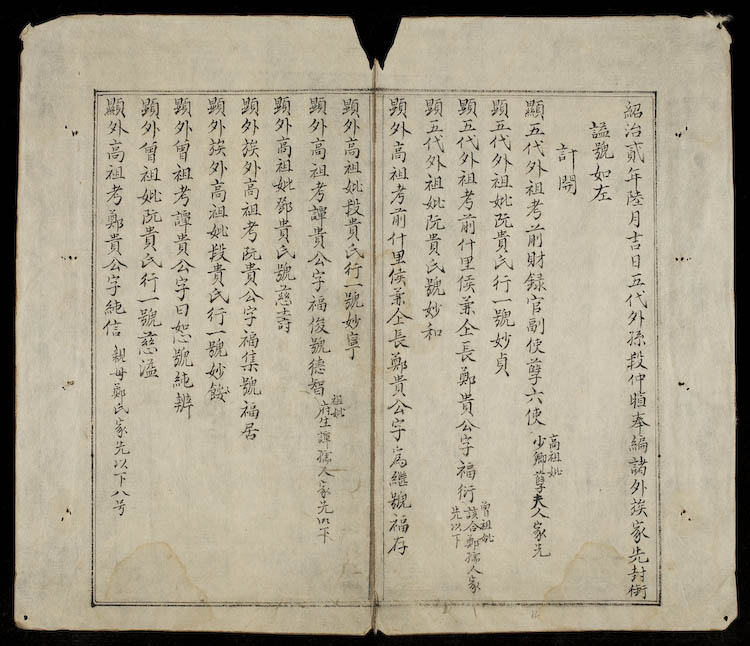 紹治貳年陸月吉日五代外孫段仲暄奉編諸外族家先封銜
謚號如左
計開
顯五代外祖考前財錄官副使孽六使
高祖妣
少卿孽夫人家先
顯五代外祖妣阮貴氏行一號妙貞
顯五代外祖考前什里侯兼全長鄭貴公字福衍
曾祖妣
該合鄭孺人家
先以下
顯五代外祖妣阮貴氏號妙和
顯外高祖考前什里侯兼全長鄭貴公字爲繼號福存
顯外高祖妣段貴氏行一號妙寧
顯外高祖考譚貴公字福俊號德智
祖妣
府生譚孺人家先以下
顯外高祖妣鄧貴氏號慈壽
顯外族外高祖考阮貴公字福集號福居
顯外族外高祖妣段貴氏行一號妙
顯外曾祖考譚貴公字曰恕號純辨
顯外曾祖妣阮貴氏行一號慈溢
顯外高祖考鄭貴公字純信
親母鄭氏家先以下八号